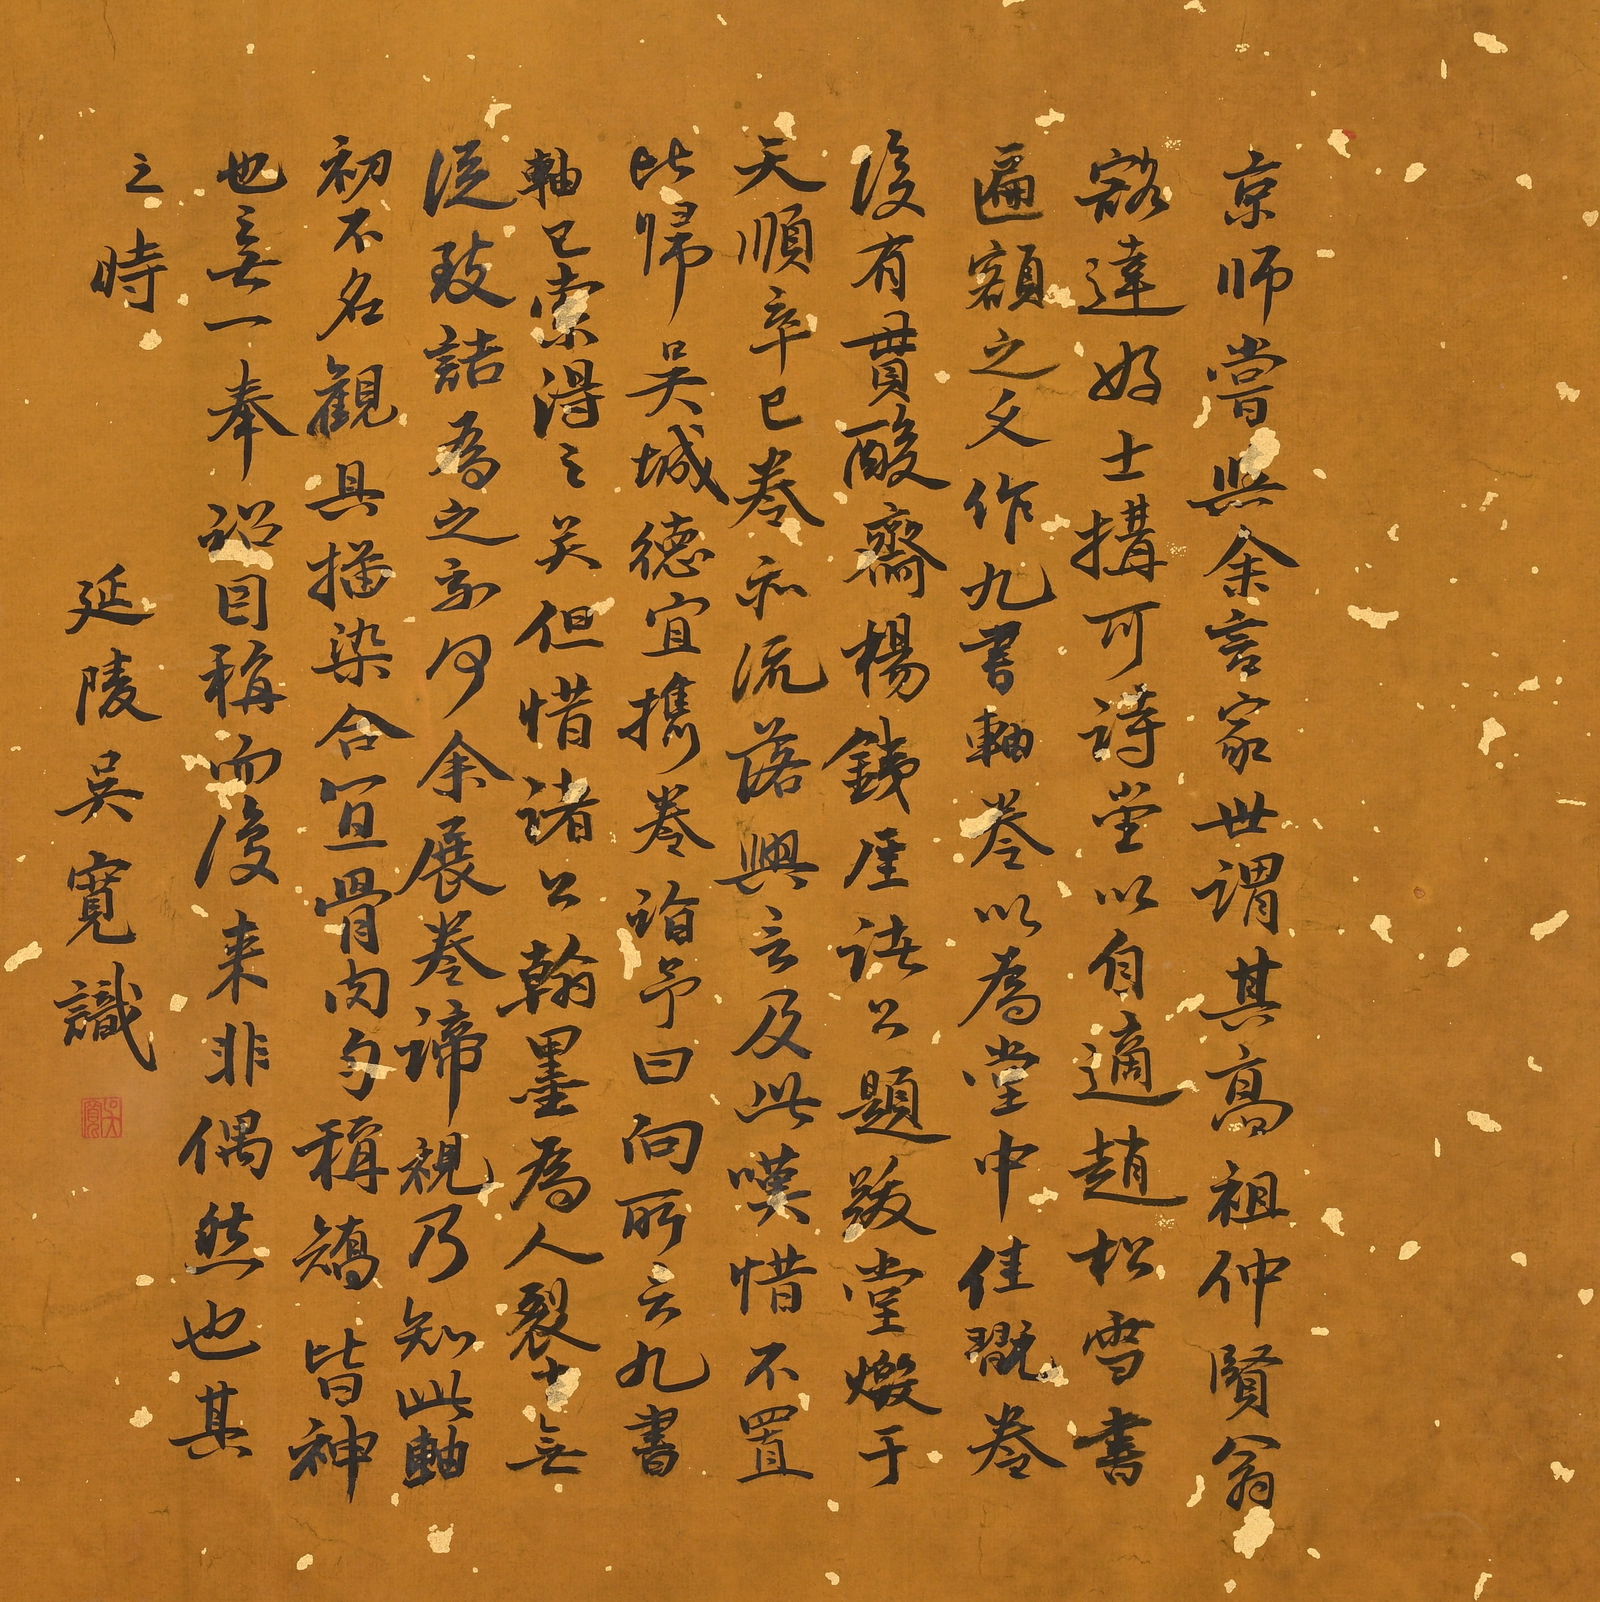 京师嘗與余言家世謂其高祖仲賢翁
豁達好士搆可詩堂以自適趙松雪書
匾額之文作九書軸卷以為堂中佳翫卷
後有貫酸齋楊鐵厓諸公題跋堂燬于
天順辛巳卷亦流落興言及此嘆惜不置
比歸吳城德宜攜卷詣予曰向所云九書
軸已索得之矣但惜諸公翰墨為人裂去無
從致詰為之奈何余展卷諦視乃知此軸
初不名觀具播染合宜骨肉勻稱矯皆神
也無一奉詔目稱而後来非偶然也其
之時
延陵吳寬識